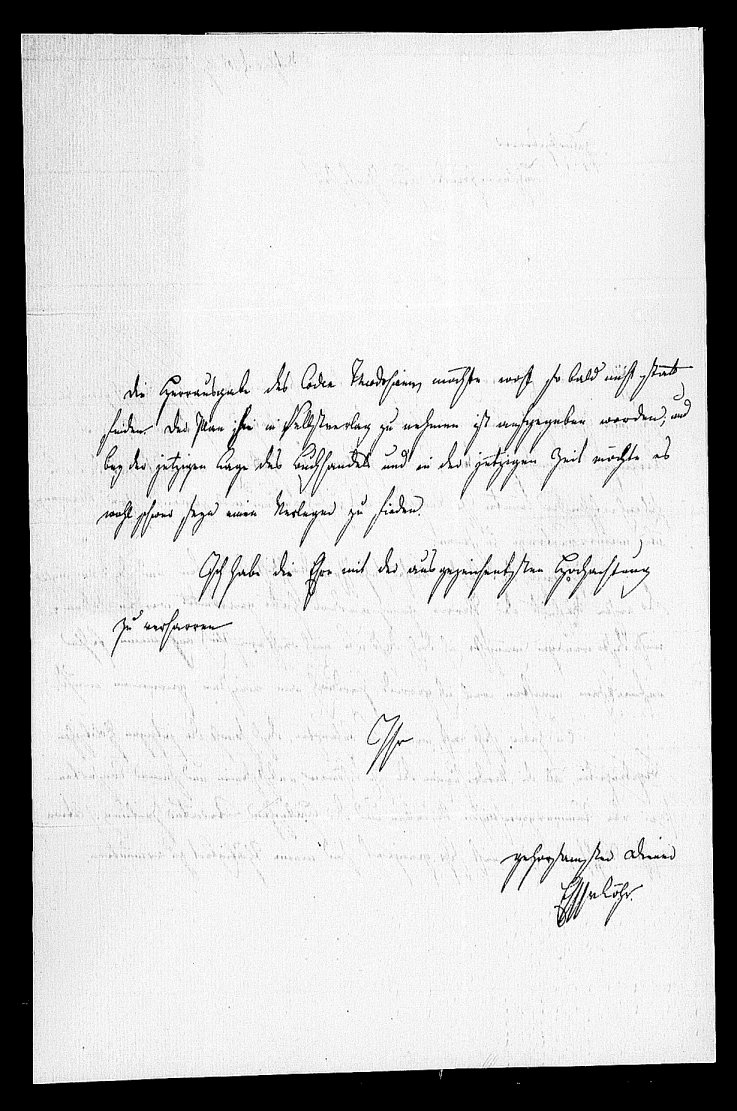 Die Herausgabe des Codex Theodosian. möchte wohl so bald nicht statt
finden. Der Plan ihn in Selbstverlag zu nehmen ist aufgegeben worden, und
bey der jetzigen Lage des Buchhandels und in der jetzigen Zeit möchte es
wohl schwer seyn einen Verleger zu finden.
Ich habe die Ehre mit der ausgezeichnetsten Hochachtung
zu verharren
Ihr
gehorsamster Diener
vLöhr.